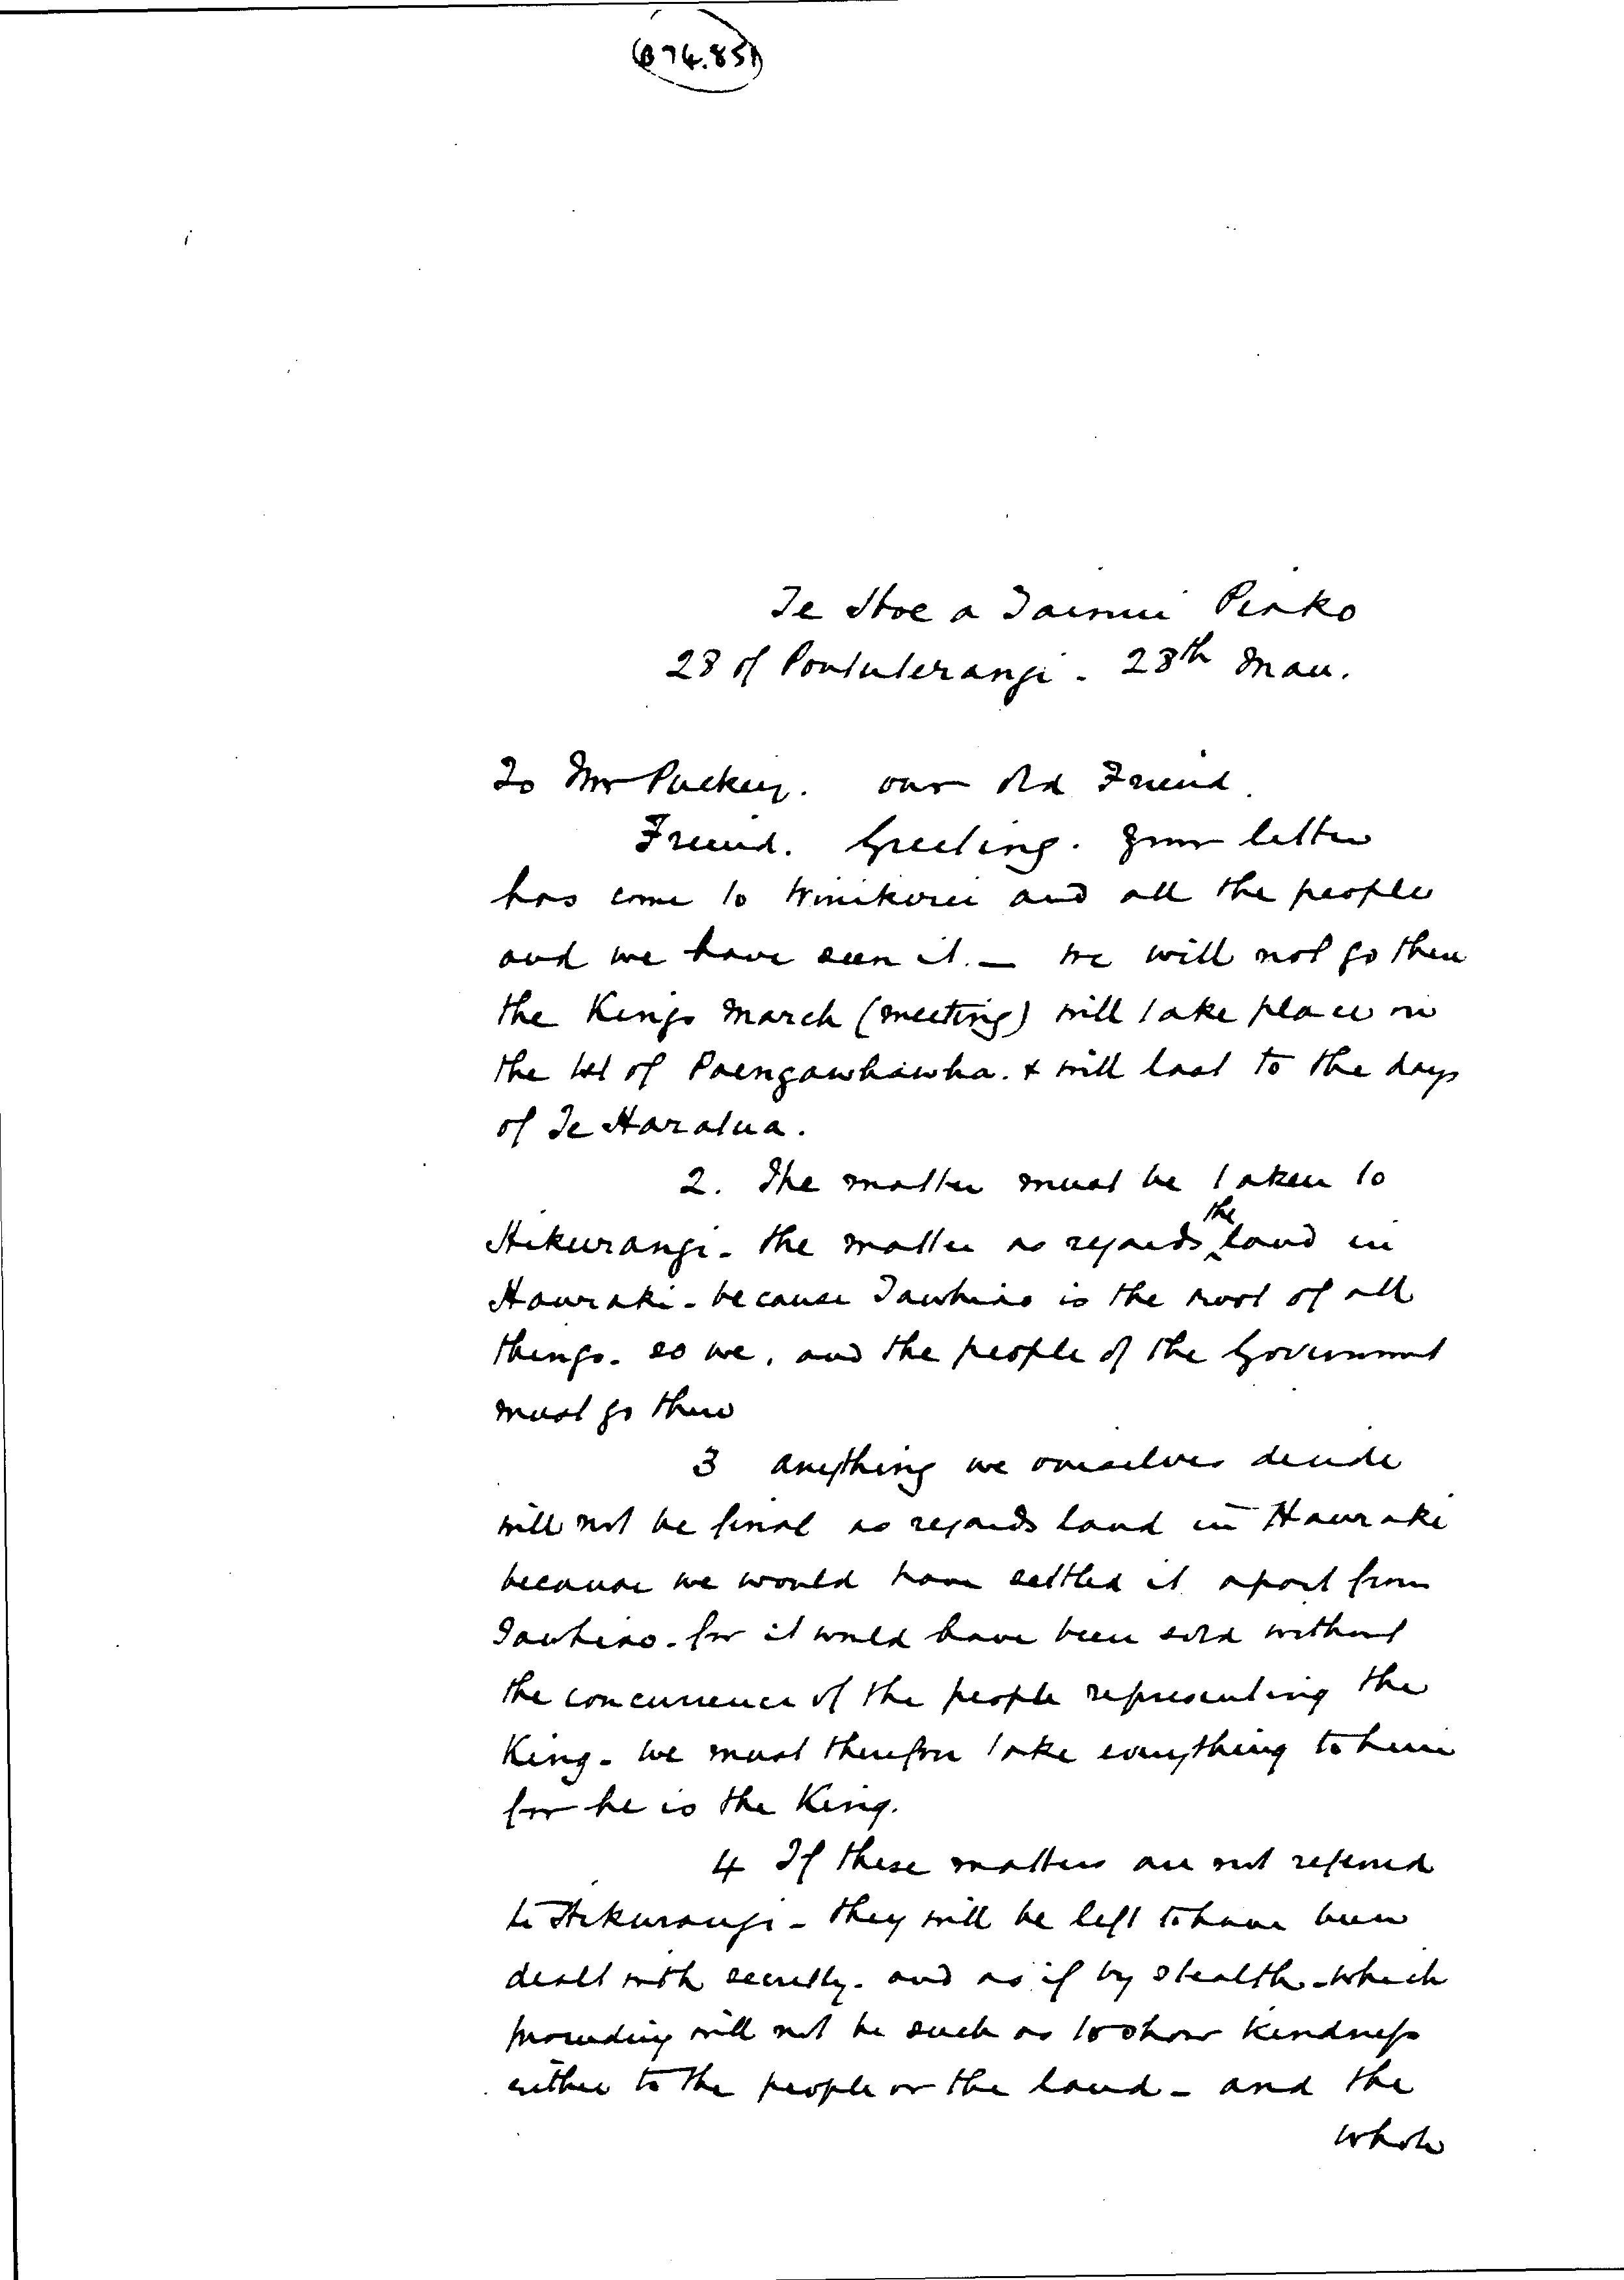 (B 74.85)
Te Hoe a Tainui Piako
28 of Poututerangi. 28th Mar.
To Mr Puckey. our old Friend.
Friend. Greeting. your letter
has come to Winikerei and all the people
and we have seen it. — we will not go then
the Kings march (meeting) will take place on
the 1st of Paengawhawha. & will last to the days
of Te Haratua.
2. The matter must be taken to
Hikurangi - the matter as regards the land in
Hauraki - because Tawhiao is the root of all
things. so we, and the people of the Government
must go there
3 anything we ourselves decide
will not be final as regards land in Hauraki
because we would have settled it apart from
Tawhiao - for it would have been sold without
the concurrence of the people representing the
King - we must therefore take everything to him
for he is the King.
4 If these matters are not referred
to Hikurangi - they will be left to have been
dealt with secretly - and as if by stealth - which
proceeding will not be such as to show kindness
either to the people or the land - and the
whole